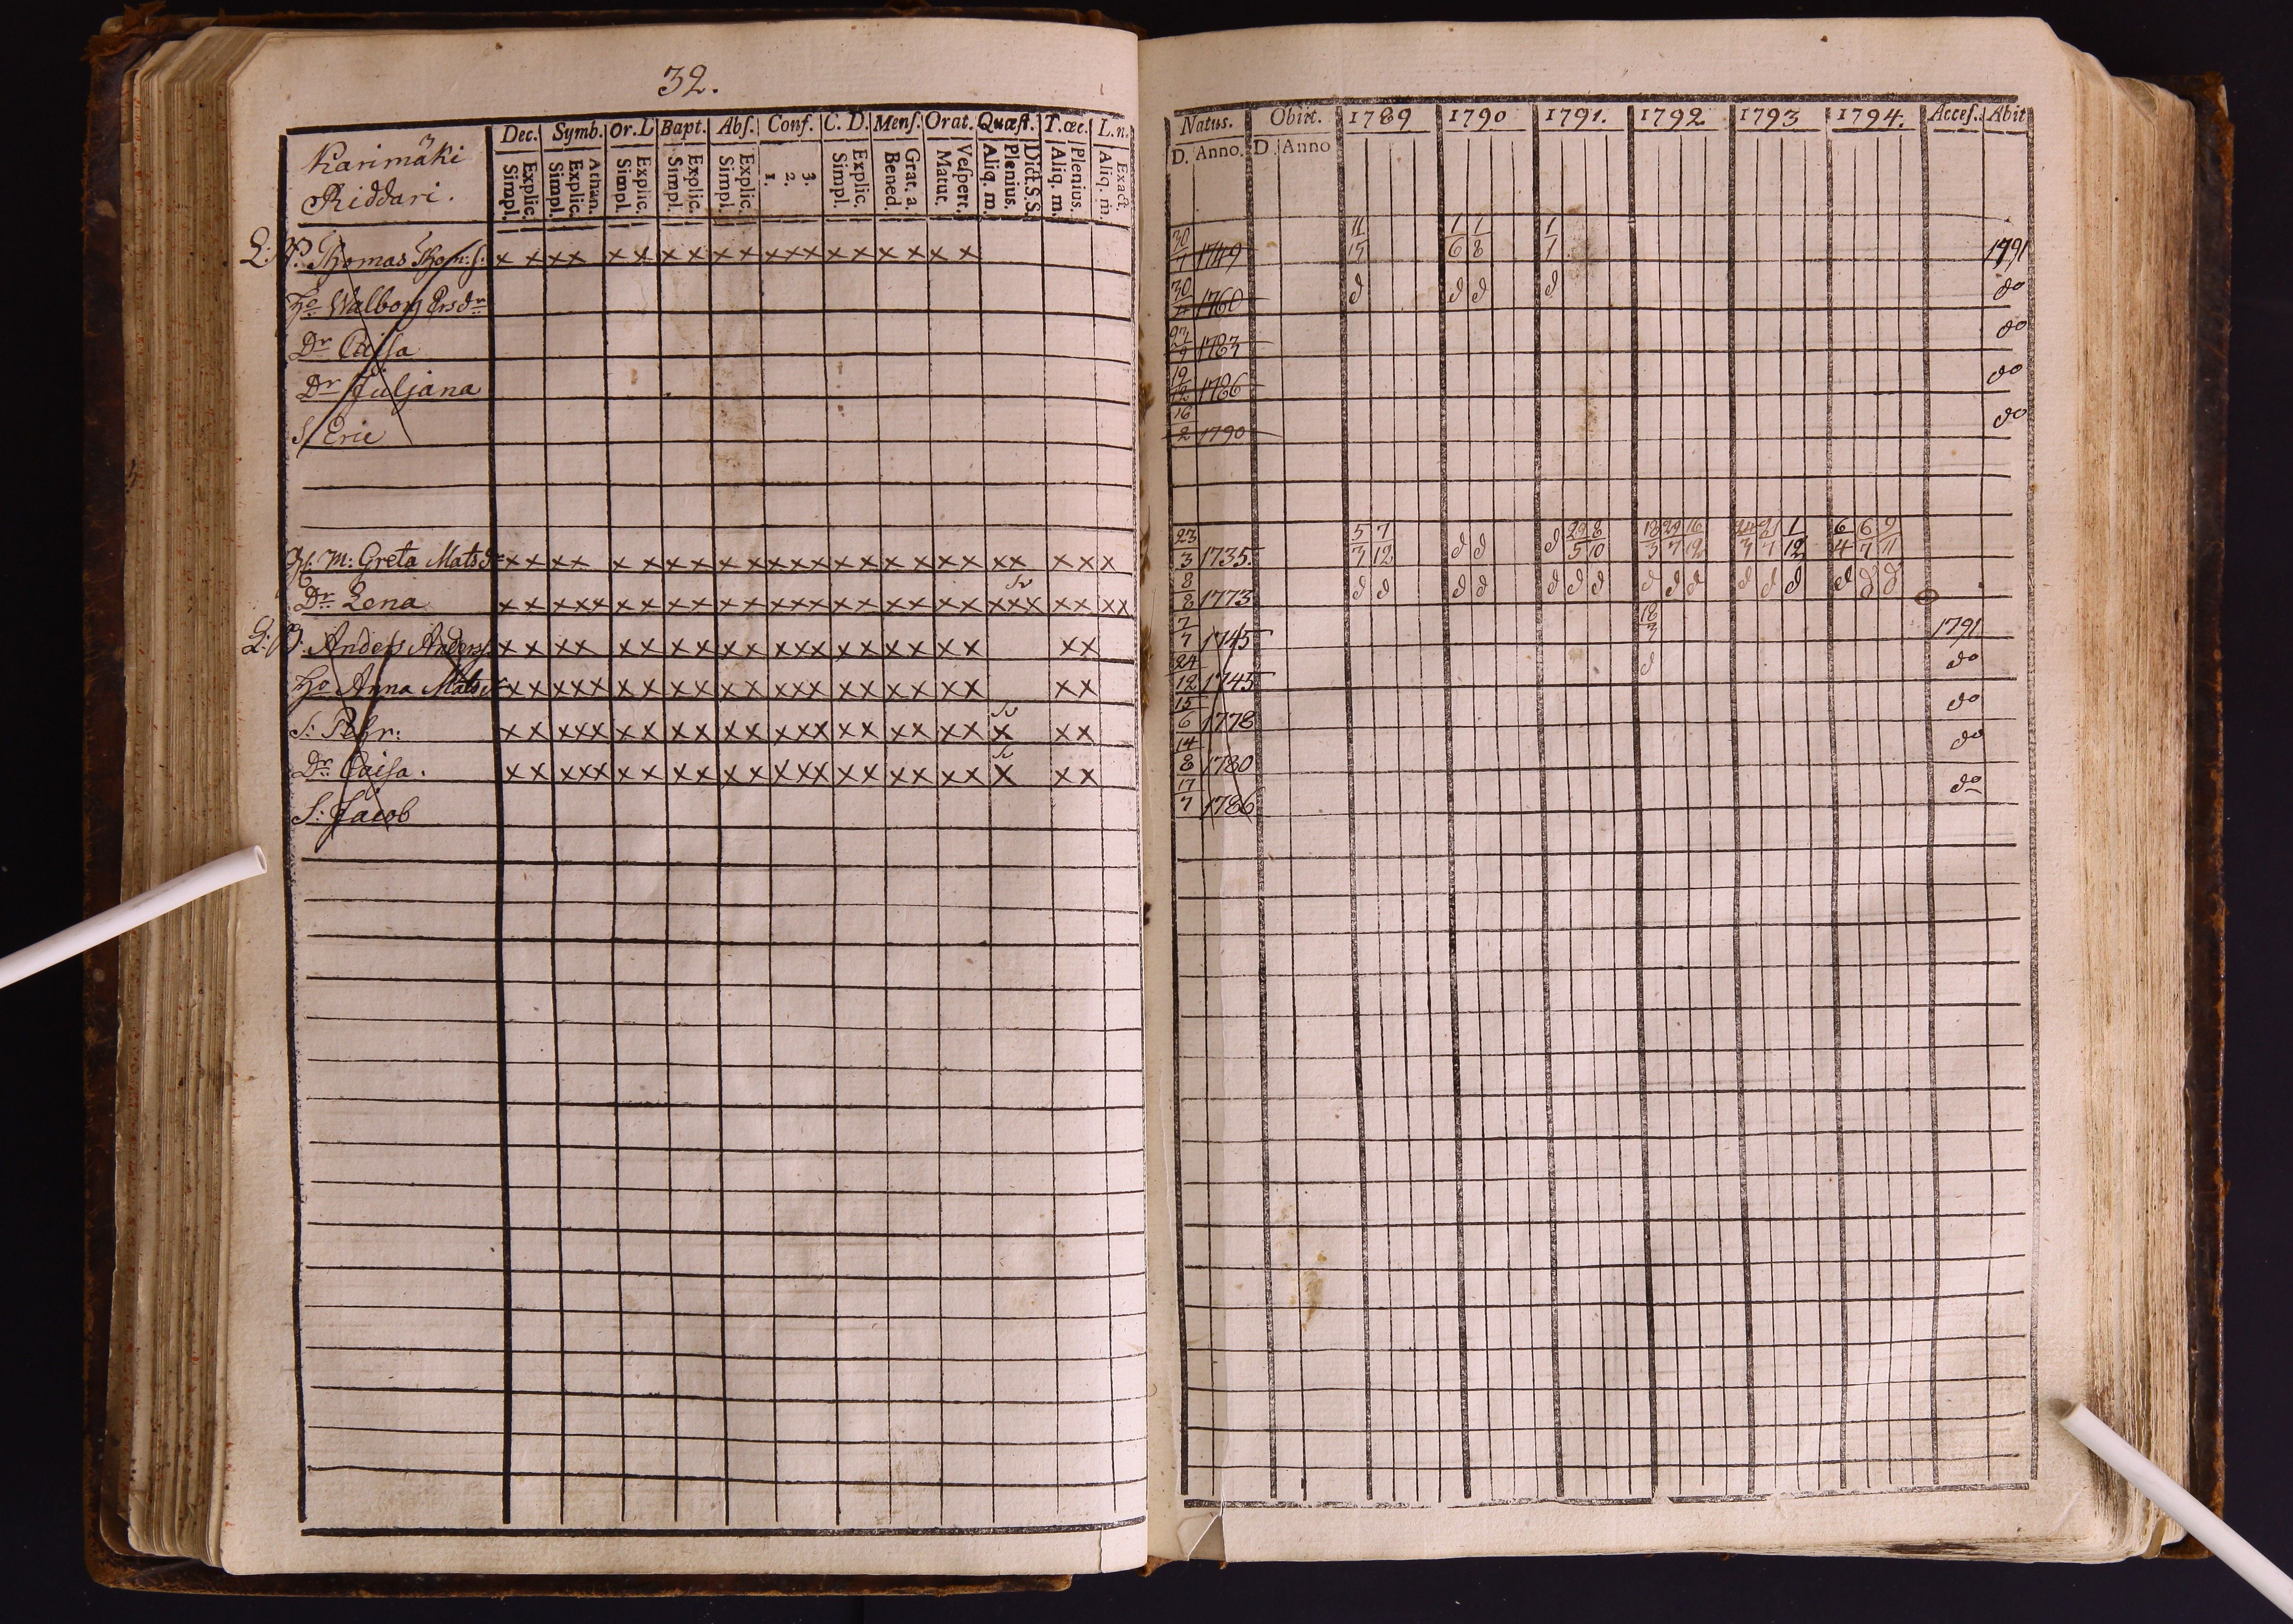 32.
Karimäki
Riddari.
Dec. Symb. Or. L Bapt. Abs. Conf. C. D. Mens. Orat. Quæst. T.œc. L.n.
Simpl. Explic. Simpl. Explic. Athan. Simpl. Explic. Simpl. Explic. Simpl. Explic. 1. 2. 3. Simpl. Explic. Bened. Grat. a. Matut. Vespert. Aliq. m. Plenius. Dict.S.S. Aliq. m. Plenius. Aliq. m. Exact.
Thomas Thom: s. x x x x x x x x x x x x x x x x x x x x
Ho Walborg Ersdr
Dr Caisa
Dr Juljana
S. Eric
m: Greta Matsdr x x x x x x x x x x x x x x x x x x x x x x x x x
Dr Lena x x x x x x x x x x x x x x x x x x x x x x x x x x x x
Anders Anderss. x x x x x x x x x x x x x x x x x x x x x x
Ho Anna Matsdr x x x x x x x x x x x x x x x x x x x x x x x
S: Pehr: x x x x x x x x x x x x x x x x x x x x x x x x
Dr Caisa. x x x x x x x x x x x x x x x x x x x x x x x x
S: Jacob
Natus. Obiit. 1789 1790 1791. 1792. 1793 1794. Acces. Abit
D. Anno. D. Anno
30/7 1749 11/15 1/6 1/8 1/1 1791
30/4 1760 d d d d do
1783 do
19/12 1786 do
16/2 1790 do
23/3 1735. 5/3 7/12 d d d 29/5 8/10 18/3 29/7 16/12 24/3 21/7 1/12 6/4 6/7 9/11
8/8 1773 d d d d d d d d d d d d d d d d
7/7 1745 18/3 1791
24/12 1745 d do
15/6 1778 do
14/8 1780 do
17/7 1786 do